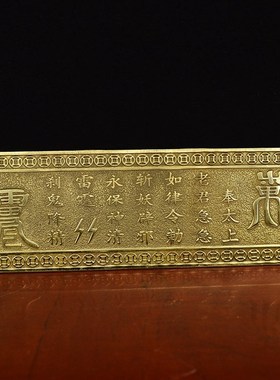 奉太上
老君急急
如律令勅
斬妖辟邪
永保神清
雷霆
刹鬼降精